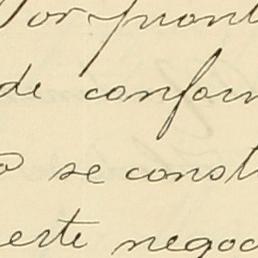 Por pront
de conform
o se const
erte negoc